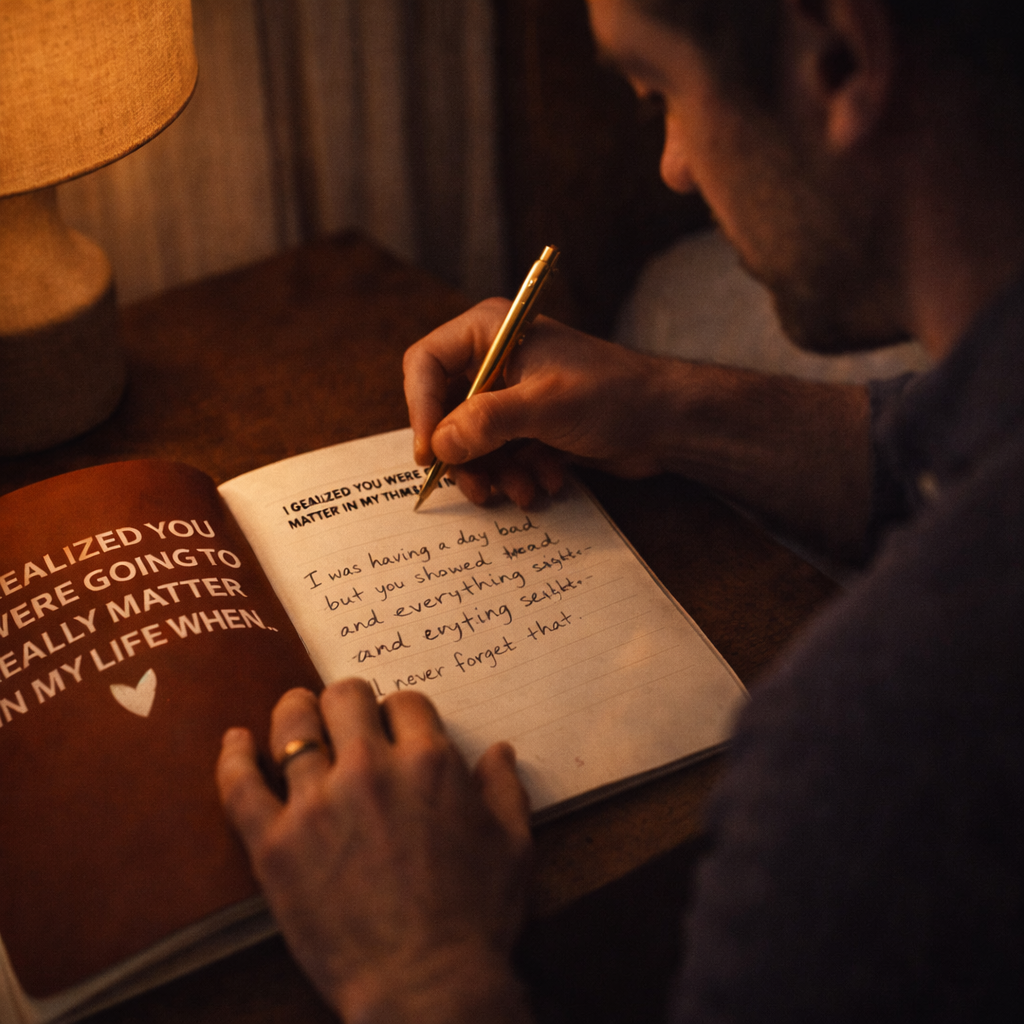 EALIZED YOU
WERE GOING TO
REALLY MATTER
IN MY LIFE WHEN..
I GEALIZED YOU WERE
MATTER IN MY
I was having a day bad
but you showed
and everything
and enyting
never forget that.
s